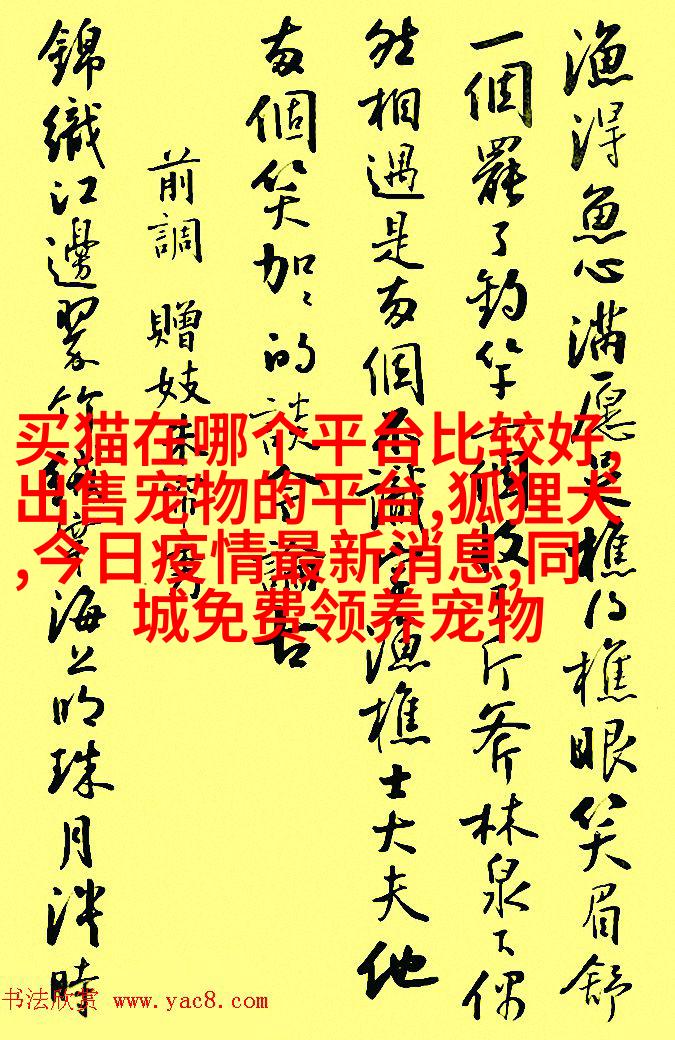 漁得魚心滿愿足樵得樵眼笑眉舒
一個罷了釣竿一個收了斤斧林泉下偶
然相遇是兩個不識字漁樵士大夫他
兩個笑加〻的談今論古
前調 贈妓朱簾秀
錦織江邊翠竹絨穿海上明珠月淡時
买猫在哪个平台比较好,
出售宠物的平台,狐狸犬
,今日疫情最新消息,同
城免费领养宠物
书法欣赏 www.yac8.com